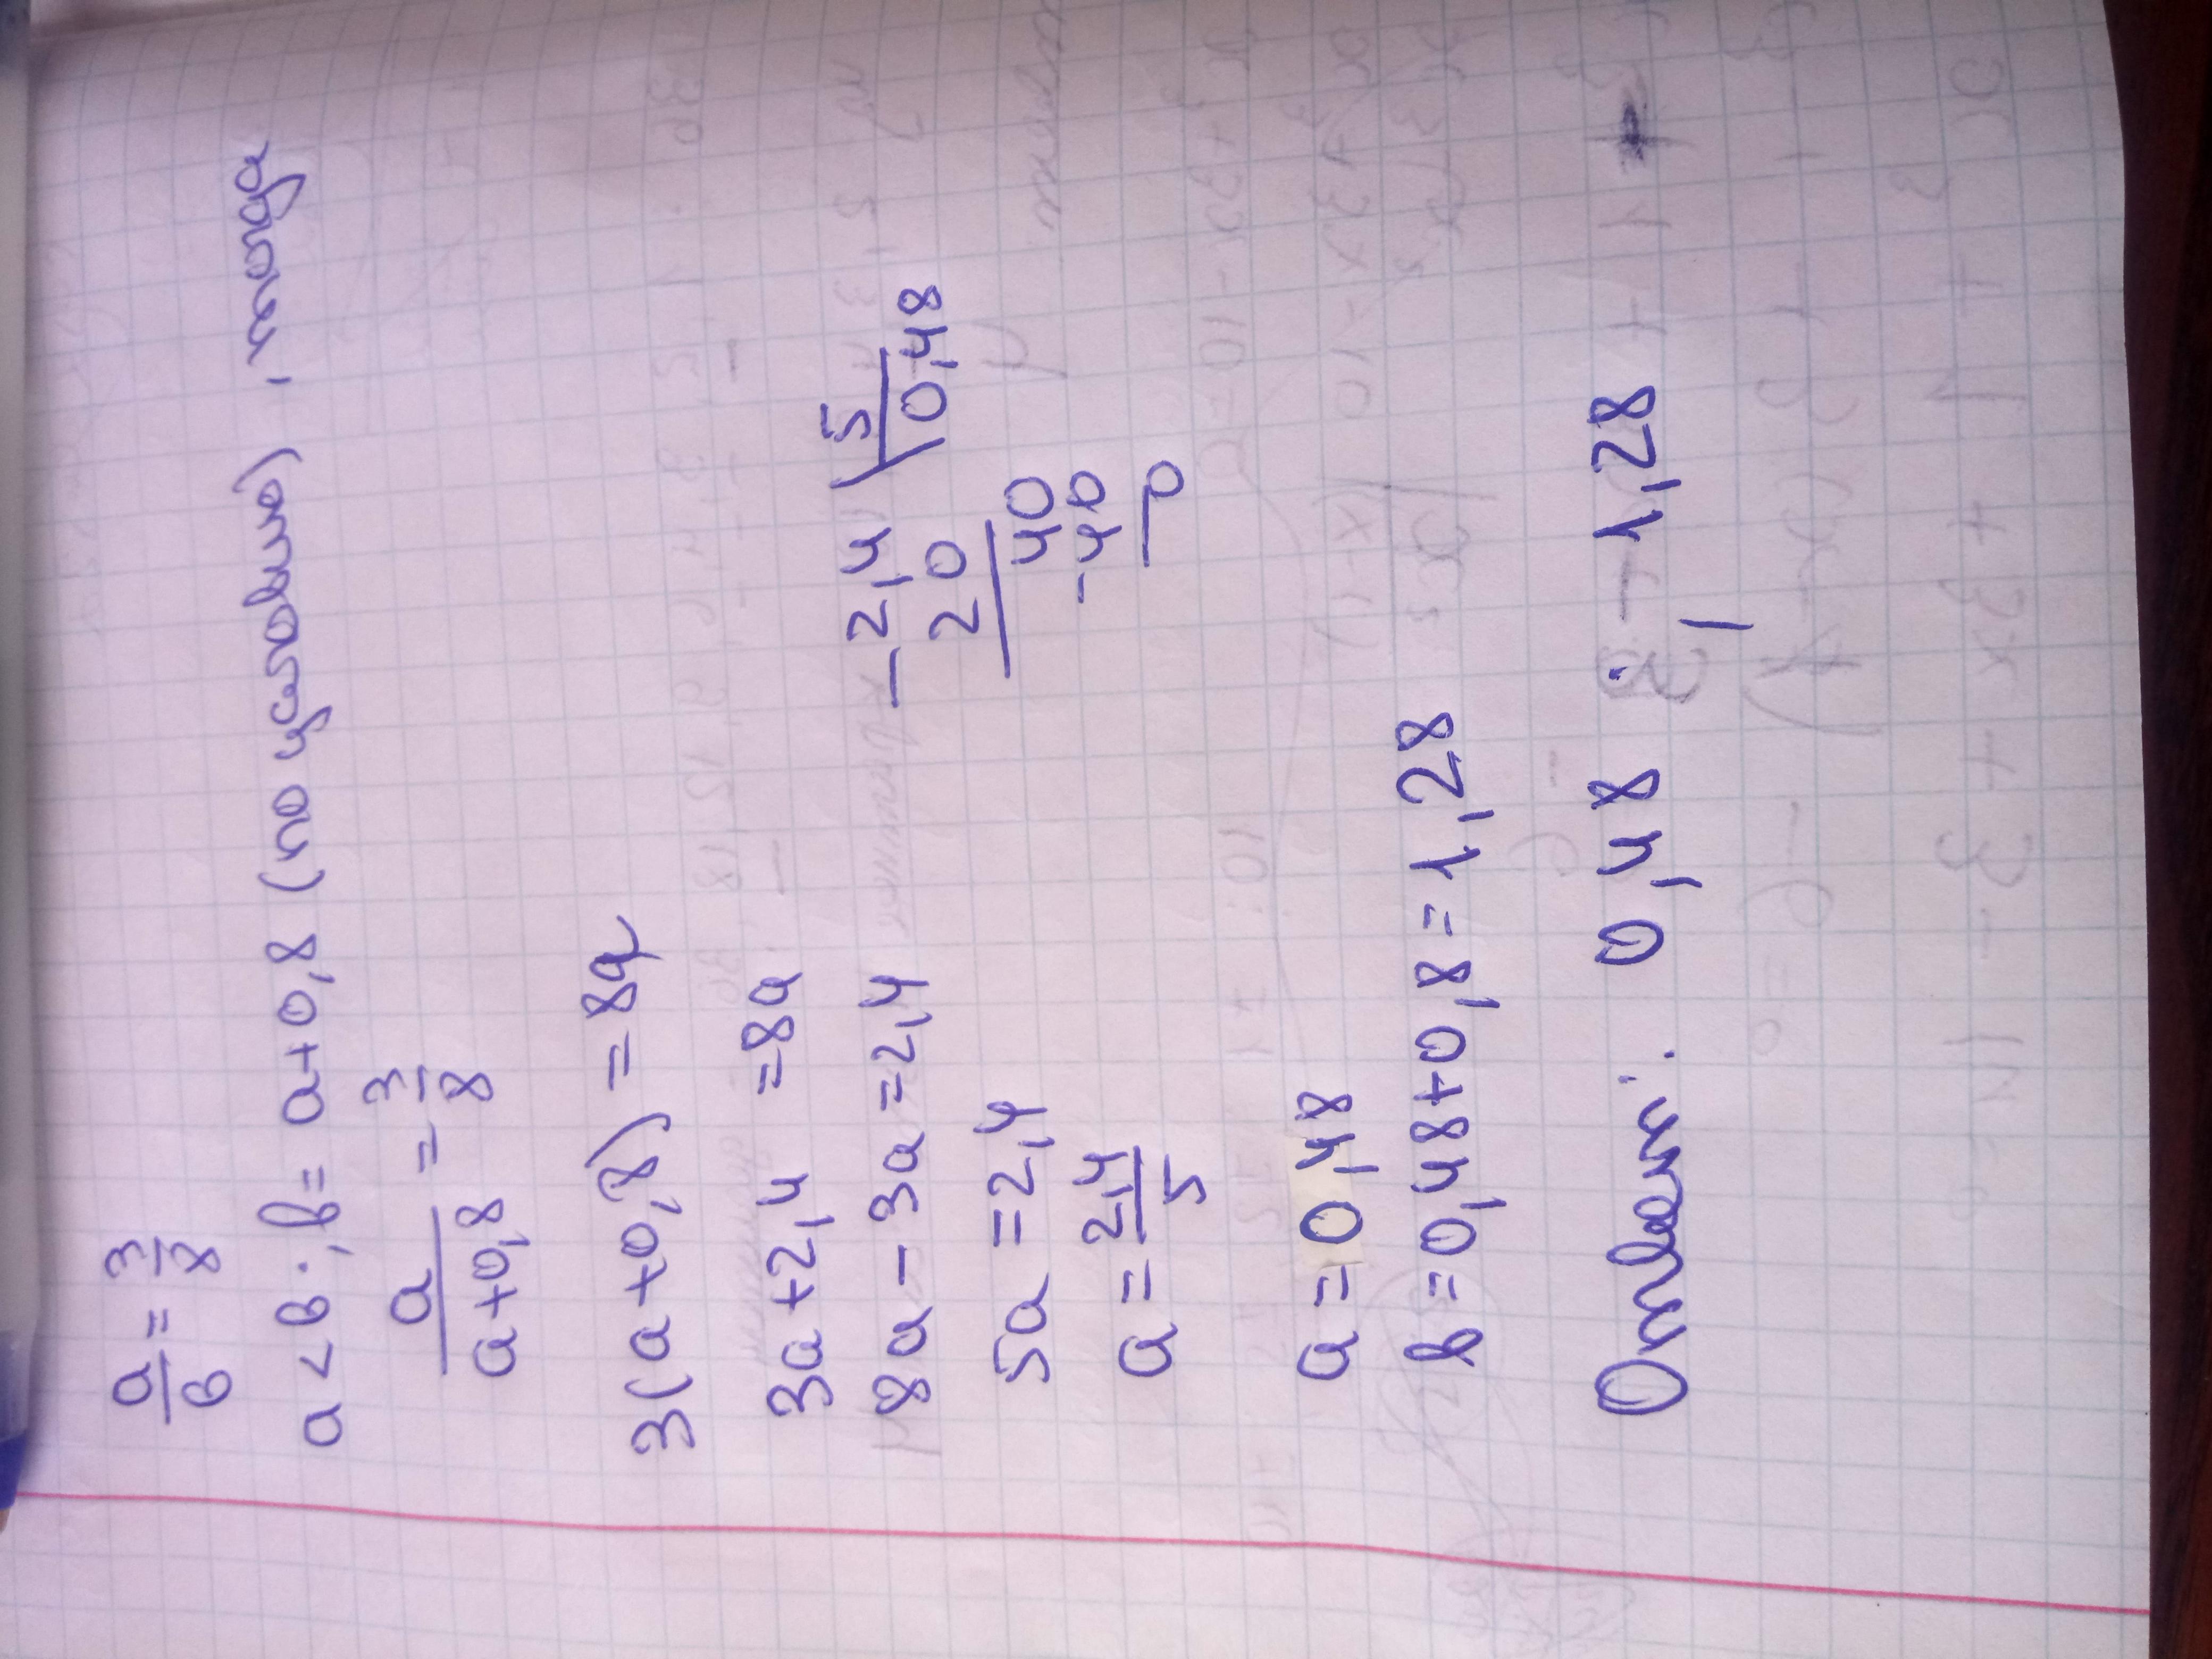 a/в = 3/8
a < в ; b = a+0,8 (по условию), тогда
a/(a+0,8) = 3/8
3(a+0,8) = 8a
3a+2,4 = 8a
8a - 3a = 2,4
5a = 2,4
a = 2,4/5
-2,4 | 5
20 | 0,48
40
-40
0
a = 0,48
b = 0,48+0,8 = 1,28
Ответ: 0,48 ; 1,28